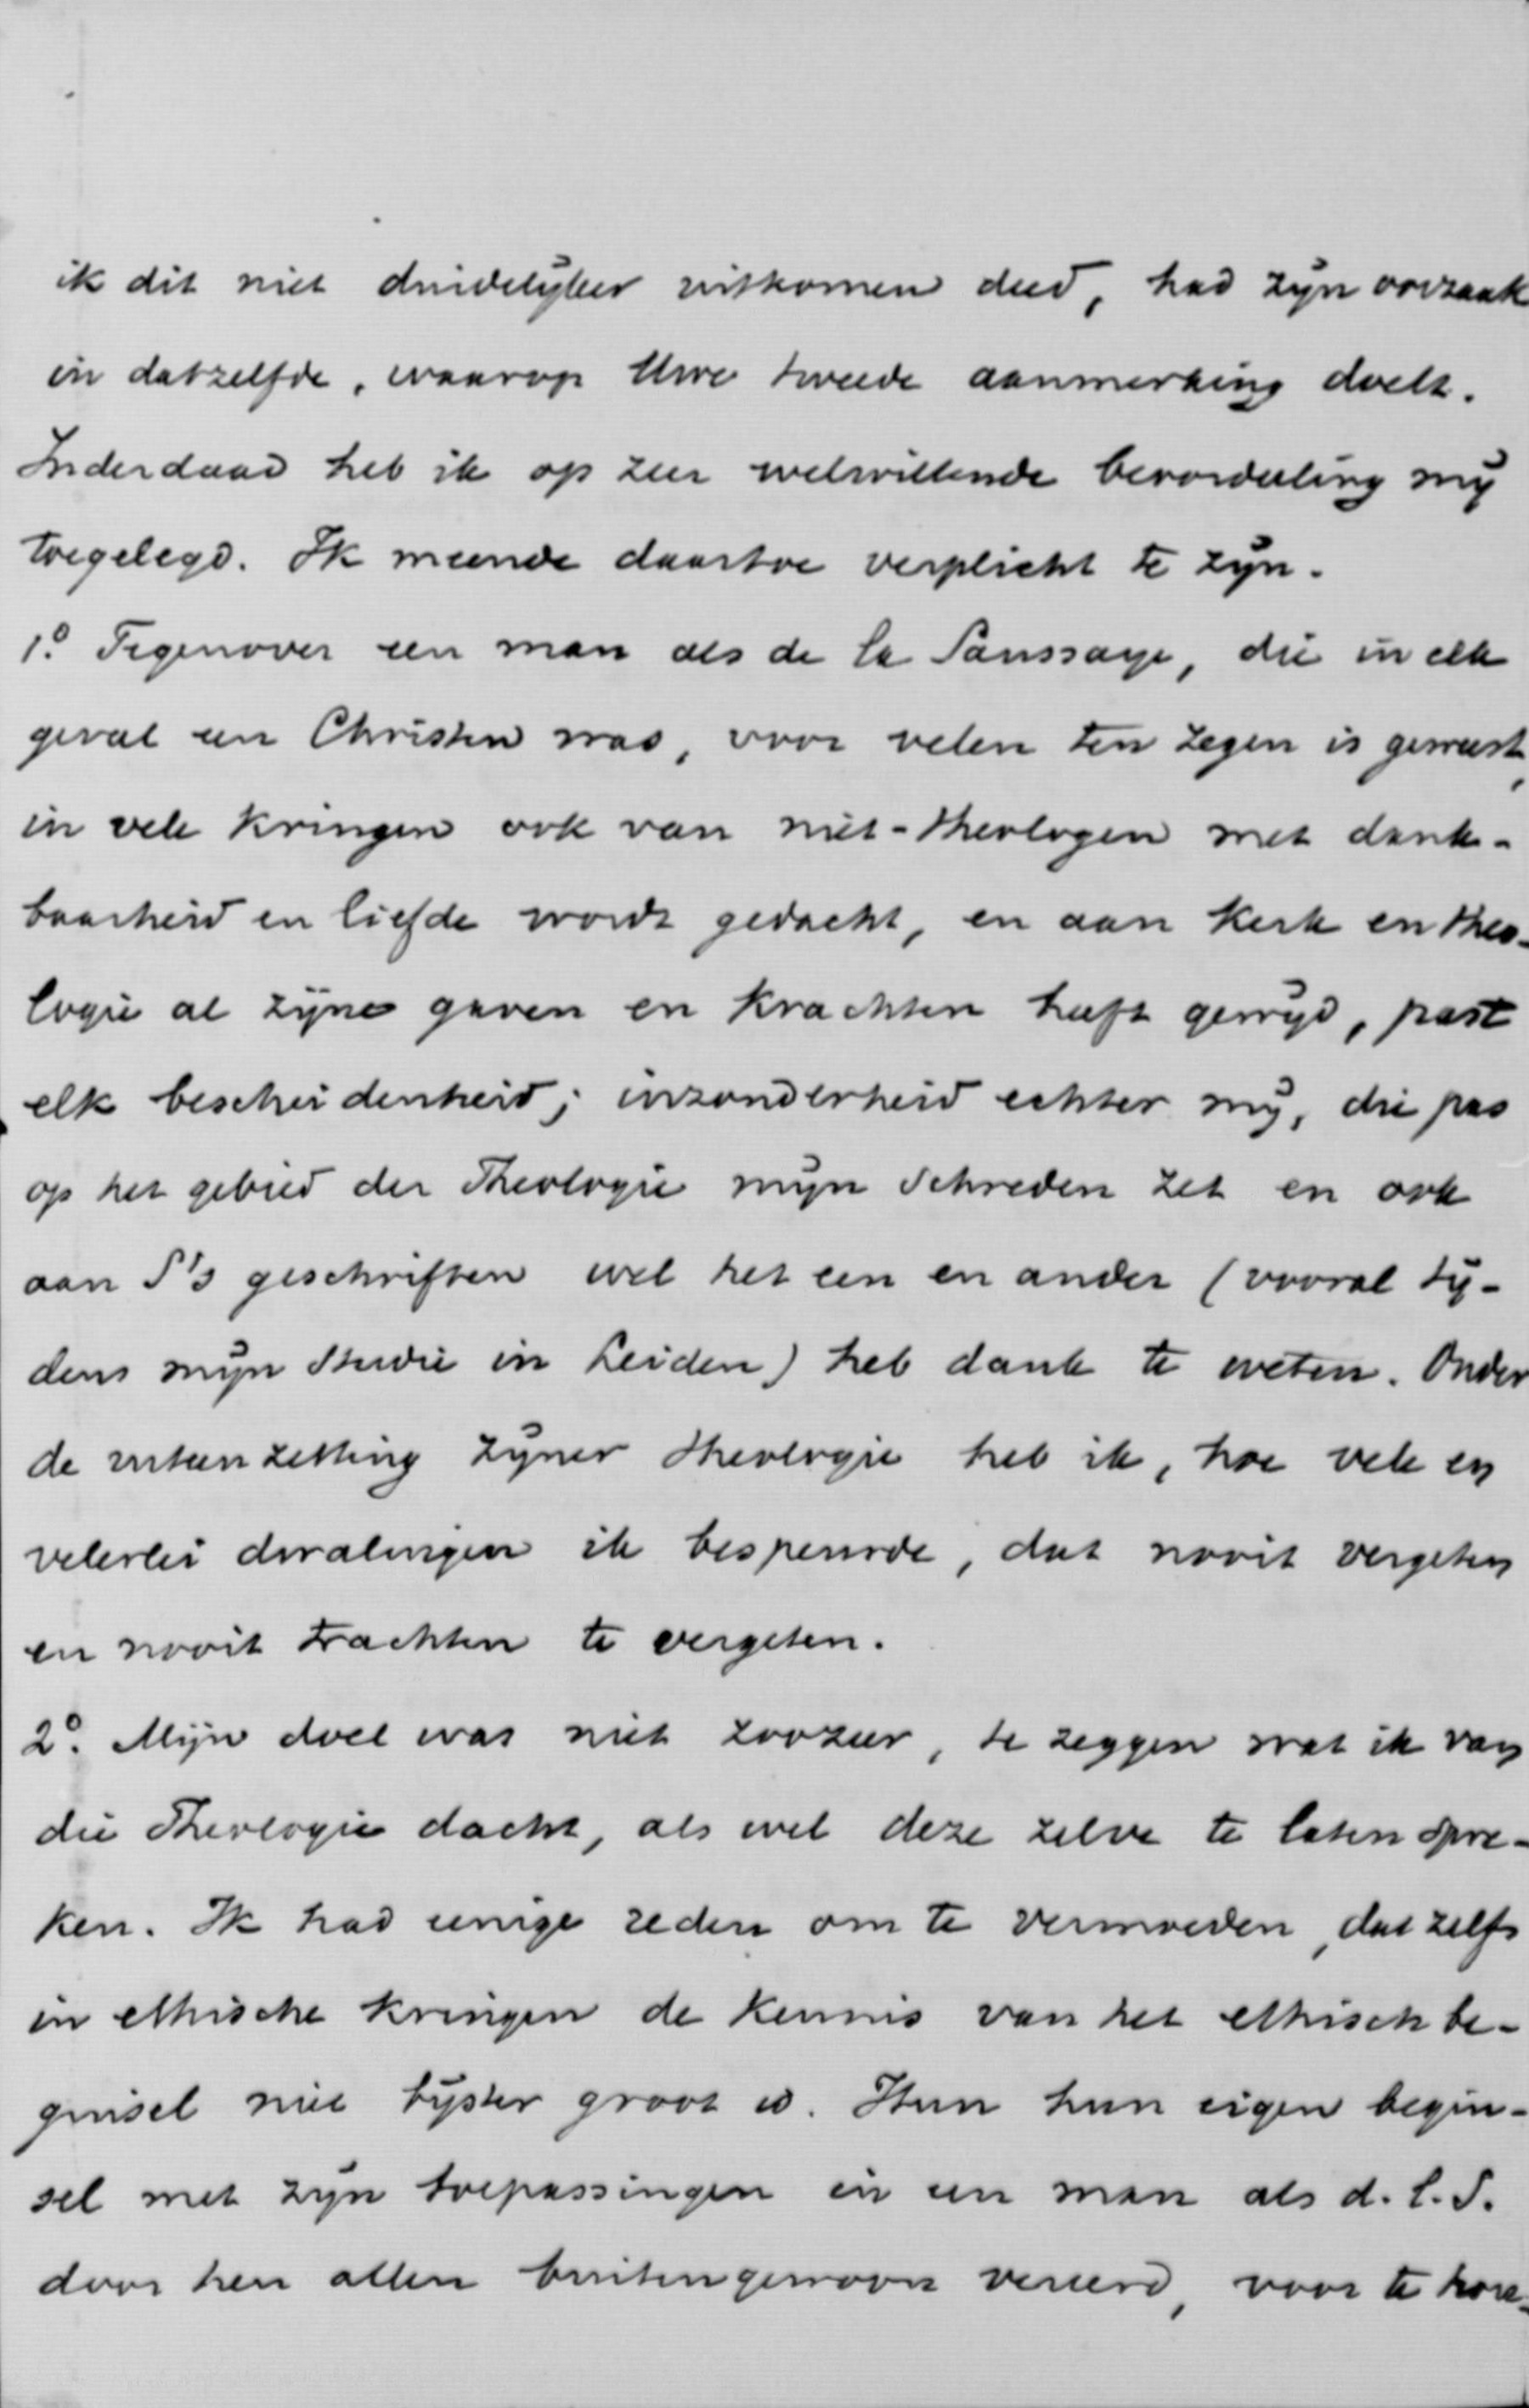 ik dit niet duidelijker uitkomen deed, had zijn oorzaak
in datzelfde, waarop Uwe tweede aanmerking doelt.
Inderdaad heb ik op zeer welwillende beoordeeling mij
toegelegd. Ik meende daartoe verplicht te zijn.
1º. Tegenover een man als de la Saussaye, die in elk
geval een Christen was, voor velen ten zegen is geweest,
in vele kringen ook van niet-theologen met dank-
baarheid en liefde wordt gedacht, en aan kerk en theo-
logie al zijne gaven en krachten heeft gewijd, past
elk bescheidenheid; inzonderheid echter mij, die pas
op het gebied der Theologie mijn schreden zet en ook
aan S's geschriften wel het een en ander (vooral tij-
dens mijn studie in Leiden) heb dank te weten. Onder
de uiteenzetting zijner theologie heb ik, hoe vele en
velerlei dwalingen ik bespeurde, dat nooit vergeten
en nooit trachten te vergeten.
2º. Mijn doel was niet zoozeer, te zeggen wat ik van
die Theologie dacht, als wel deze zelve te laten spre-
ken. Ik had eenige reden om te vermoeden, dat zelfs
in ethische kringen de kennis van het ethisch be-
ginsel niet bijster groot is. Hun hun eigen begin-
sel met zijn toepassingen in een man als d. l. S.
door hen allen buitengewoon vereerd, voor te hou-